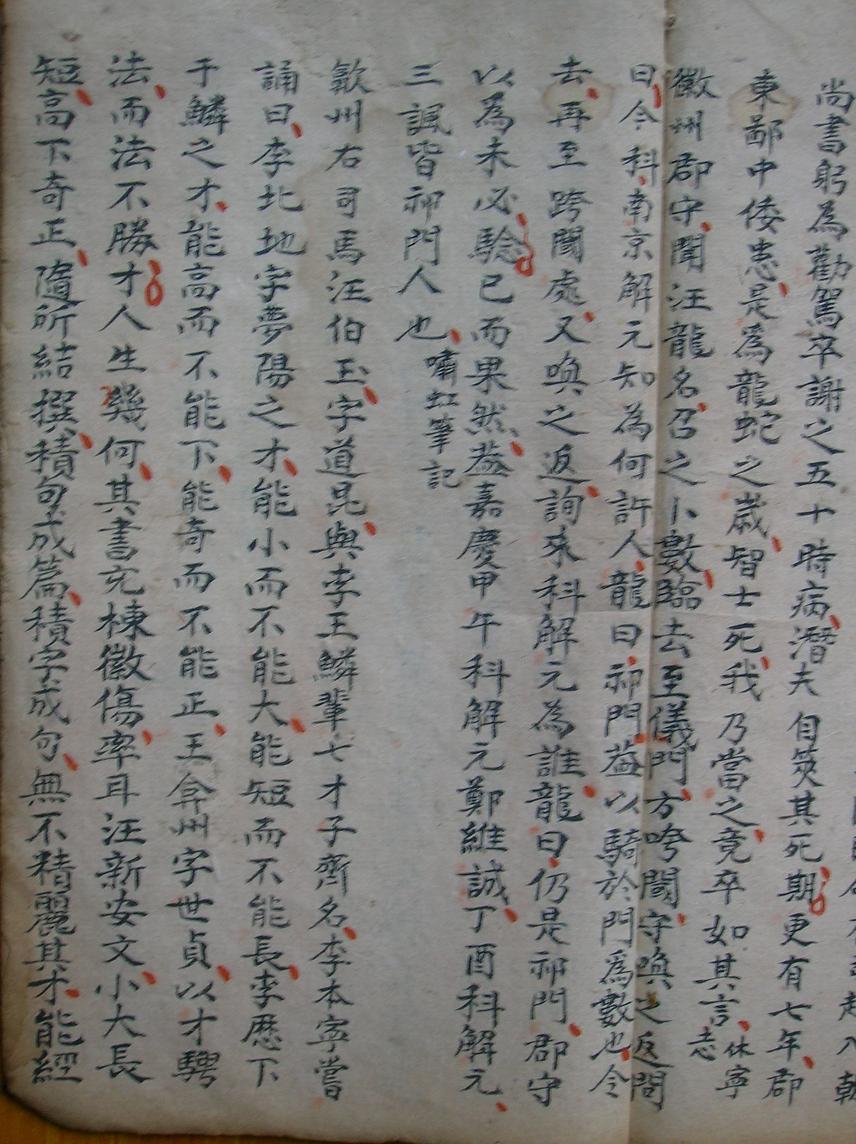 起入朝
尚書躬為勸駕卒謝之五十時病潛夫自筴其死期更有七年郡
東鄙中倭患是為龍蛇之歲智士死我乃當之竟卒如其言休寧志
徽州郡守聞汪龍名召之卜數臨去至儀門方跨閾守喚之返問
曰今科南京解元知為何許人龍曰祁門葢以騎於門為數也令
去再至跨閾處又喚之返詢來科解元為誰龍曰仍是祁門郡守
以為未必驗已而果然葢嘉慶甲午科解元鄭維誠丁酉科解元
三諷皆祁門人也嘯虹筆記
歙州右司馬汪伯玉字道昆與李王鱗輩七才子齊名李本寧嘗
誦曰李北地字夢陽之才能小而不能大能短而不能長李歷下
于鱗之才能高而不能下能奇而不能正王弇州字世貞以才騁
法而法不勝才人生幾何其書充棟徽傷率耳汪新安文小大長
短高下奇正隨所結撰積句成篇積字成句無不精麗其才能經